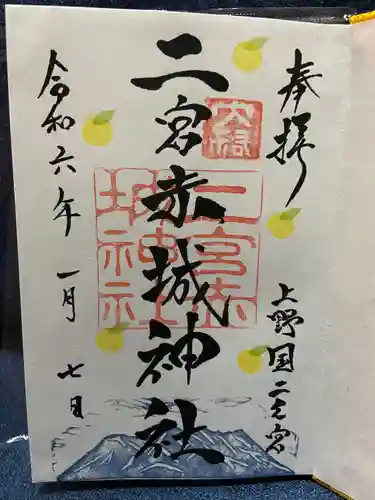 奉拝
上野国二之宮
二宮赤城神社
令和六年一月七日
二宮赤城神社